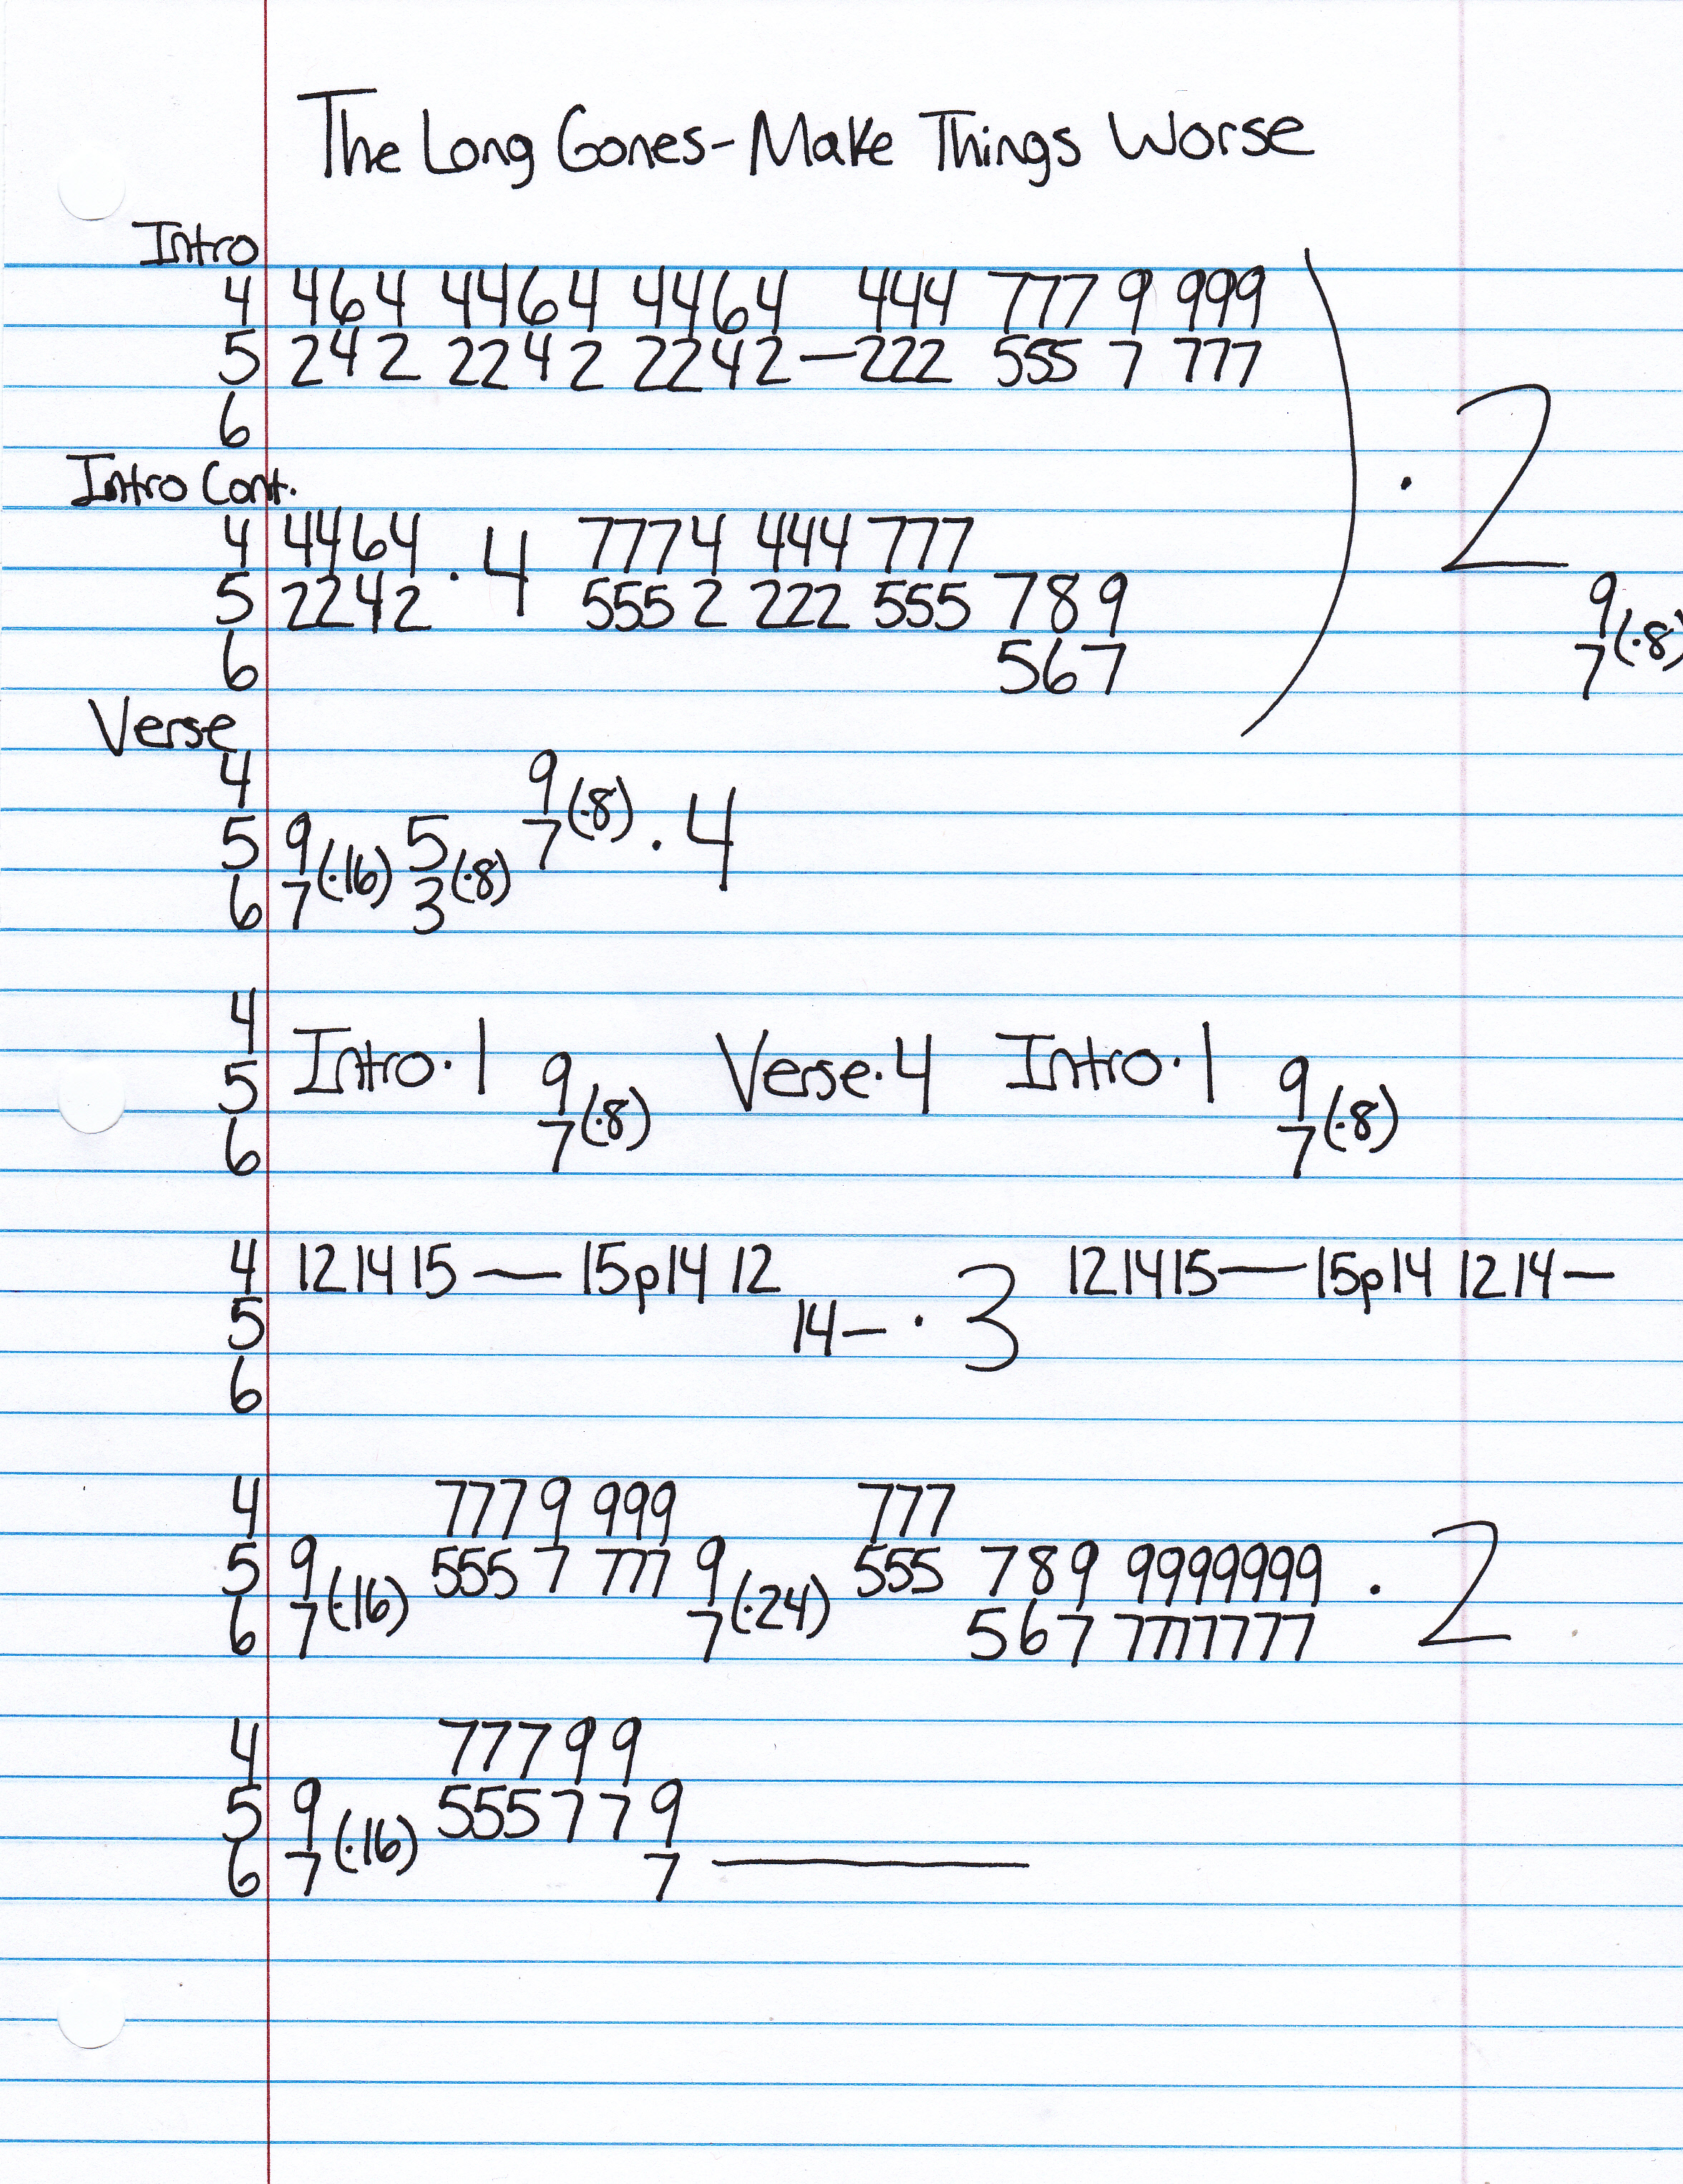 The Long Gones - Make Things Worse
Intro
4 464 4464 4464 444 777 9 999
5 242 2242 2242—222 555 7 777
6
) · 2
Intro Cont.
4 4464 7774 444 777
· 4
5 2242 5552 222 555 789 9
6 567 7(·8)
Verse
4 9
7(·8) · 4
5 9 5
6 7(·16) 3(·8)
4
5 Intro·1 9 Verse·4 Intro·1 9
6 7(·8) 7(·8)
4 12 14 15 — 15p14 12 12 14 15 — 15p14 12 14 —
5 14 — · 3
6
4 7779 999 777
5 9 555 7 777 9 555 789 9999999 · 2
6 7(·16) 7(·24) 567 7777777
4 77799
5 9 55577 9
6 7(·16) 7 ———